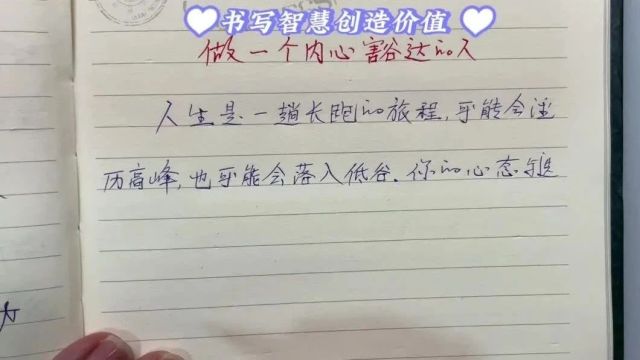 书写智慧创造价值
做一个内心豁达的人
人生是一趟长跑的旅程,可能会经
历高峰,也可能会落入低谷.你的心态